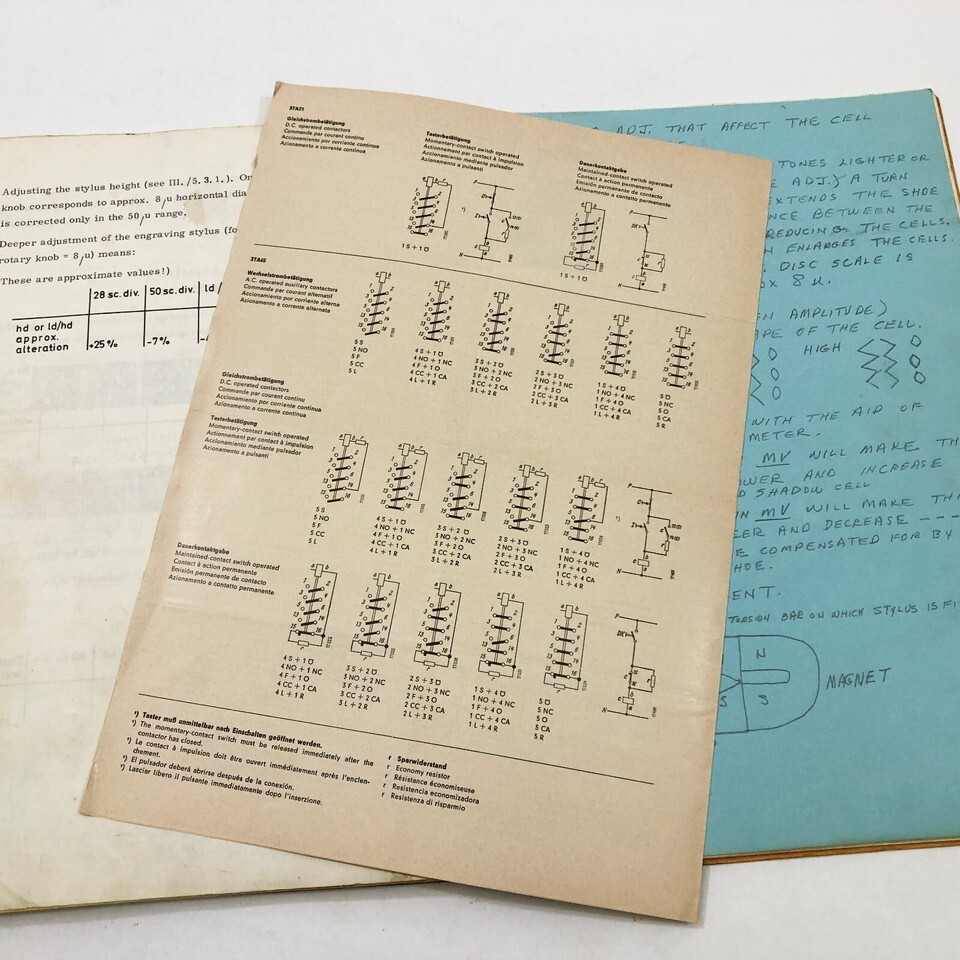 Adjusting the stylus height (see III. /5. 3. 1. ). On
knob corresponds to approx. 8/u horizontal dia
is corrected only in the 50/u range.
Deeper adjustment of the engraving stylus (fo
rotary knob = 8/u) means:
These are approximate values!)
28 sc. div. 50 sc. div. ld /
hd or ld/hd
approx.
alteration +25% -7%
3TA21
Gleichstrombetätigung
D.C. operated contactors
Commande par courant continu
Accionamiento por corriente continua
Azionamento a corrente continua
Tasterbetätigung
Momentary-contact switch operated
Actionnement par contact à impulsion
Accionamiento mediante pulsador
Azionamento a pulsanti
Dauerkontaktgabe
Maintained-contact switch operated
Contact à action permanente
Emisión permanente de contacto
Azionamento a contatto permanente
1 S + 1 Ö
1 S + 1 Ö
3TA65
Wechselstrombetätigung
A.C. operated auxiliary contactors
Commande par courant alternatif
Accionamiento por corriente alterna
Azionamento a corrente alternata
5 S
5 NO
5 F
5 CC
5 L
4 S + 1 Ö
4 NO + 1 NC
4 F + 1 O
4 CC + 1 CA
4 L + 1 R
3 S + 2 Ö
3 NO + 2 NC
3 F + 2 O
3 CC + 2 CA
3 L + 2 R
2 S + 3 Ö
2 NO + 3 NC
2 F + 3 O
2 CC + 3 CA
2 L + 3 R
1 S + 4 Ö
1 NO + 4 NC
1 F + 4 O
1 CC + 4 CA
1 L + 4 R
5 Ö
5 NC
5 O
5 CA
5 R
Gleichstrombetätigung
D.C. operated contactors
Commande par courant continu
Accionamiento por corriente continua
Azionamento a corrente continua
Tasterbetätigung
Momentary-contact switch operated
Actionnement par contact à impulsion
Accionamiento mediante pulsador
Azionamento a pulsanti
5 S
5 NO
5 F
5 CC
5 L
4 S + 1 Ö
4 NO + 1 NC
4 F + 1 O
4 CC + 1 CA
4 L + 1 R
3 S + 2 Ö
3 NO + 2 NC
3 F + 2 O
3 CC + 2 CA
3 L + 2 R
2 S + 3 Ö
2 NO + 3 NC
2 F + 3 O
2 CC + 3 CA
2 L + 3 R
1 S + 4 Ö
1 NO + 4 NC
1 F + 4 O
1 CC + 4 CA
1 L + 4 R
Dauerkontaktgabe
Maintained-contact switch operated
Contact à action permanente
Emisión permanente de contacto
Azionamento a contatto permanente
4 S + 1 Ö
4 NO + 1 NC
4 F + 1 O
4 CC + 1 CA
4 L + 1 R
3 S + 2 Ö
3 NO + 2 NC
3 F + 2 O
3 CC + 2 CA
3 L + 2 R
2 S + 3 Ö
2 NO + 3 NC
2 F + 3 O
2 CC + 3 CA
2 L + 3 R
1 S + 4 Ö
1 NO + 4 NC
1 F + 4 O
1 CC + 4 CA
1 L + 4 R
5 Ö
5 NC
5 O
5 CA
5 R
¹) Taster muß unmittelbar nach Einschalten geöffnet werden.
¹) The momentary-contact switch must be released immediately after the
contactor has closed.
¹) Le contact à impulsion doit être ouvert immédiatement après l'enclen-
chement.
¹) El pulsador deberá abrirse después de la conexión.
¹) Lasciar libero il pulsante immediatamente dopo l'inserzione.
r Sparwiderstand
r Economy resistor
r Résistance économiseuse
r Resistencia economizadora
r Resistenza di risparmio
ADJ. THAT AFFECT THE CELL
TONES LIGHTER OR
E ADJ.) A TURN
EXTENDS THE SHOE
NCE BETWEEN THE
REDUCING THE CELLS.
N ENLARGES THE CELLS.
DISC SCALE IS
OX 8 u.
EN AMPLITUDE)
APE OF THE CELL.
HIGH
WITH THE AID OF
METER.
MV WILL MAKE TH
OWER AND INCREASE
D SHADOW CELL
IN MV WILL MAKE TH
EER AND DECREASE ---
E COMPENSATED FOR BY
HOE.
ENT.
TORSION BAR ON WHICH STYLUS IS FI
N
S S
MAGNET